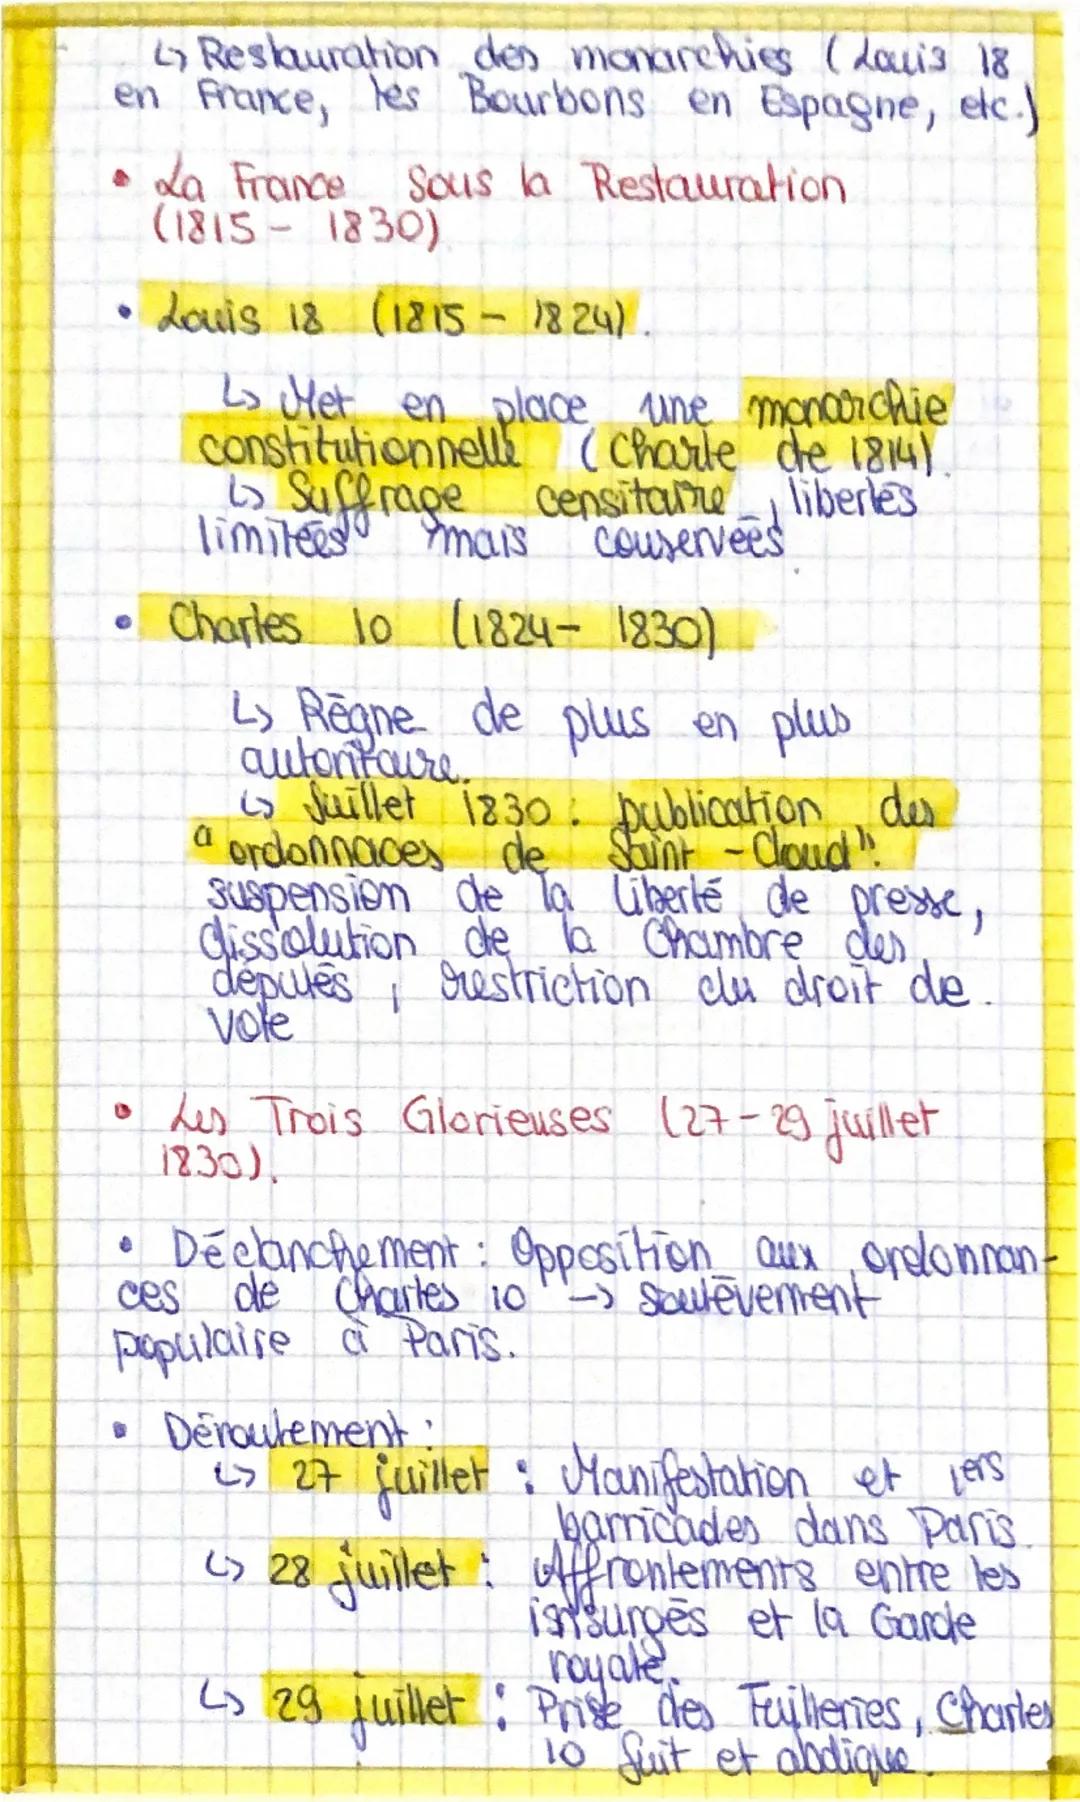 ↳ Restauration des monarchies (Louis 18
en France, les Bourbons en Espagne, etc.)
• La France sous la Restauration
(1815 - 1830)
• Louis 18 (1815 - 1824).
↳ Met en place une monarchie
constitutionnelle (Charte de 1814).
↳ Suffrage censitaire, libertés
limitées mais conservées
• Charles 10 (1824 - 1830)
↳ Règne de plus en plus
autoritaire.
↳ Juillet 1830 : publication des
"ordonnaces de Saint-Cloud":
suspension de la liberté de presse,
dissolution de la Chambre des
députés, restriction du droit de
vote
• Les Trois Glorieuses (27-29 juillet
1830).
• Déclanchement : Opposition aux ordonnan-
ces de Charles 10 → soulèvement
populaire à Paris.
• Déroulement :
↳ 27 juillet : Manifestation et 1ers
barricades dans Paris.
↳ 28 juillet : Affrontements entre les
insurgés et la Garde
royale.
↳ 29 juillet : Prise des Tuilleries, Charles
10 fuit et abdique.